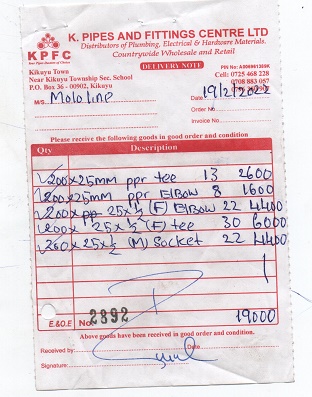 K. PIPES AND FITTINGS CENTRE LTD
Distributors of Plumbing, Electrical & Hardware Materials.
Countrywide Wholesale and Retail
KPFC
DELIVERY NOTE
Kikuyu Town
Near Kikuyu Township Sec. School
P.O. Box 36 - 00902, Kikuyu
Cell: 0725 468 228
0708 883 057
M/S Mololine
Date 19/2/2022
Order No
Invoice No.
Please receive the following goods in good order and condition
Qty Description
200x25mm ppr tee 13 2600
200x25mm ppr Elbow 8 1600
200x pp 25x½ (F) Elbow 22 4400
200x 25x½ (F) tee 30 6000
200x25x½ (M) Socket 22 4400
E.&O.E No. 2892 19000
Above goods have been received in good order and condition.
Received by: Date
Signature: